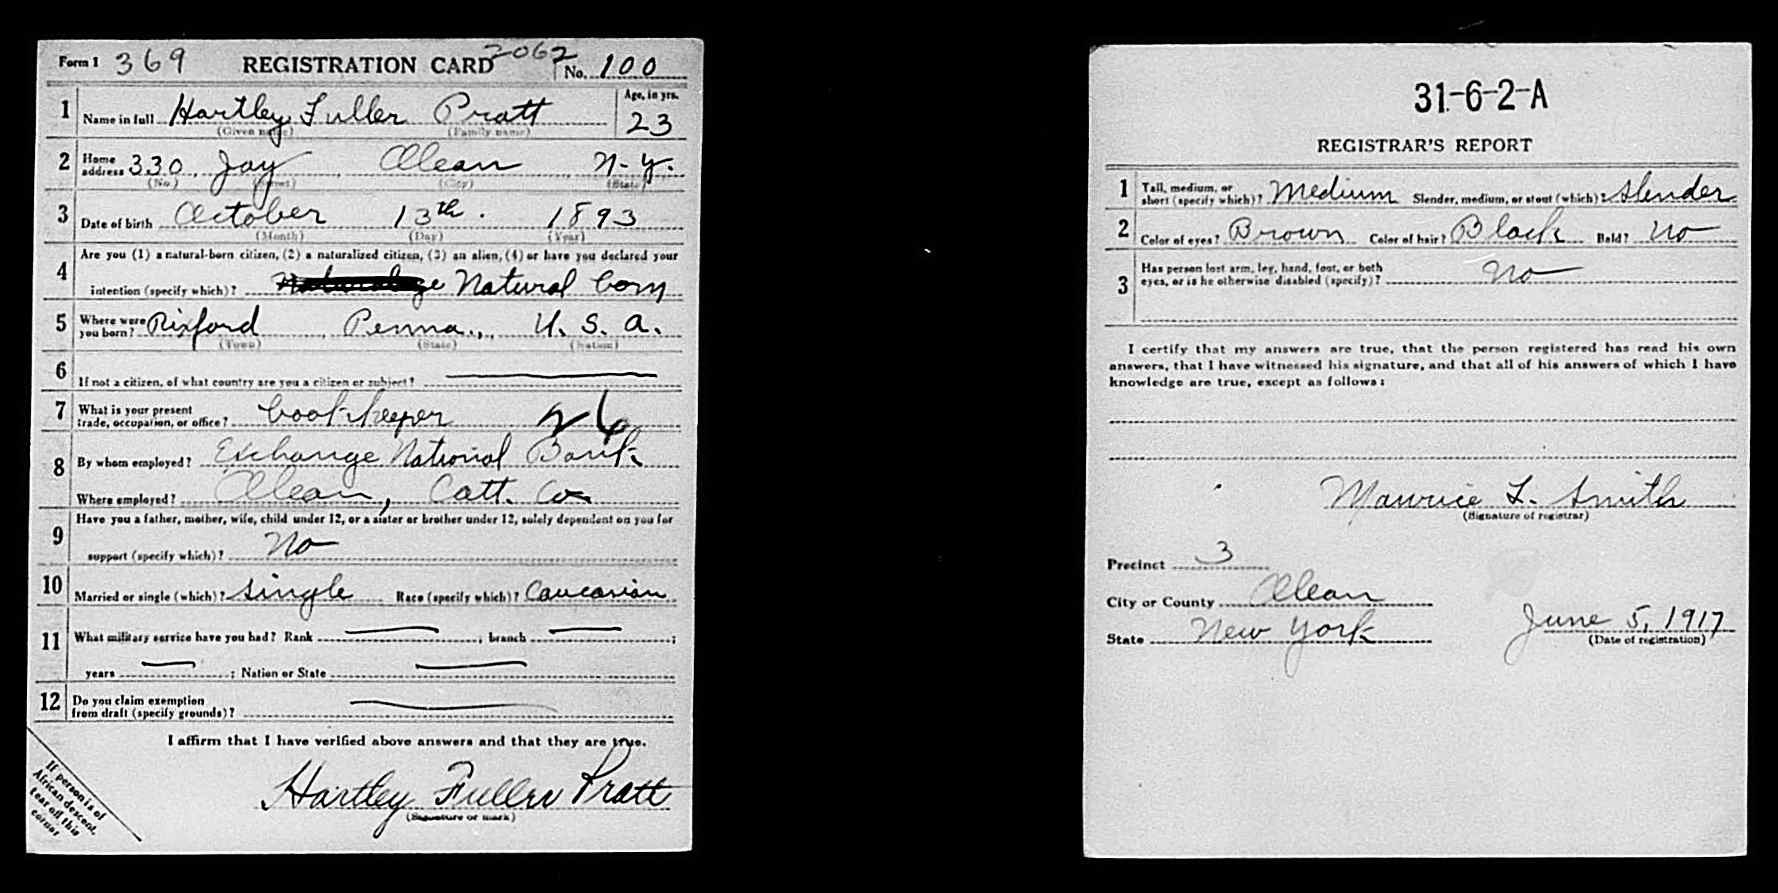 Form 1 369 REGISTRATION CARD 2062 No. 100
1 Name in full Hartley Fuller Pratt Age, in yrs. 23
(Given name) (Family name)
2 Home address 330 Jay Olean N-Y.
(No.) (Street) (City) (State)
3 Date of birth October 13th. 1893
(Month) (Day) (Year)
4 Are you (1) a natural-born citizen, (2) a naturalized citizen, (3) an alien, (4) or have you declared your
intention (specify which)? Natural born
5 Where were you born? Rixford Penna., U. S. A.
(Town) (State) (Nation)
6 If not a citizen, of what country are you a citizen or subject?
7 What is your present
trade, occupation, or office? bookkeeper 26
8 By whom employed? Exchange National Bank
Where employed? Olean, Catt. Co
9 Have you a father, mother, wife, child under 12, or a sister or brother under 12, solely dependent on you for
support (specify which)? No
10 Married or single (which)? single Race (specify which)? Caucasian
11 What military service have you had? Rank ; branch ;
years ; Nation or State
12 Do you claim exemption
from draft (specify grounds)?
I affirm that I have verified above answers and that they are true.
Hartley Fuller Pratt
(Signature or mark)
If person is of
African descent,
tear off this
corner
31-6-2-A
REGISTRAR'S REPORT
1 Tall, medium, or
short (specify which)? Medium Slender, medium, or stout (which)? Slender
2 Color of eyes? Brown Color of hair? Black Bald? No
3 Has person lost arm, leg, hand, foot, or both
eyes, or is he otherwise disabled (specify)? No
I certify that my answers are true, that the person registered has read his own
answers, that I have witnessed his signature, and that all of his answers of which I have
knowledge are true, except as follows:
Maurice L. Smith
(Signature of registrar)
Precinct 3
City or County Olean
State New York
June 5, 1917
(Date of registration)